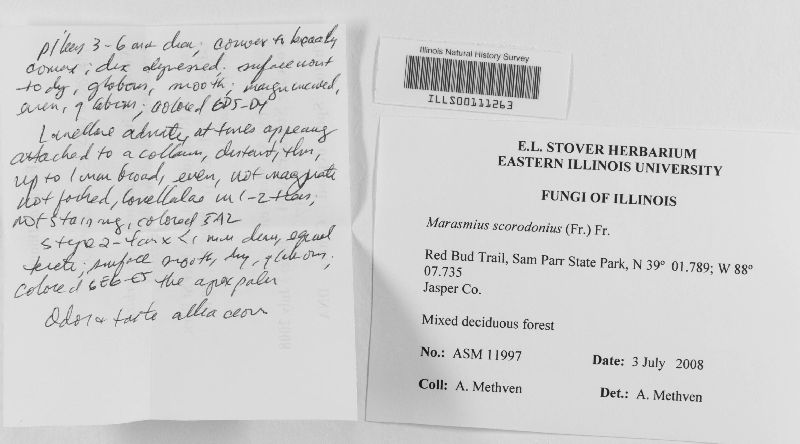 pileus 3-6 mm diam; convex to broadly
convex; disc depressed; surface moist
to dry, glabrous, smooth; margin incurved,
even, glabrous; colored 6D5-D4
Lamellae adnate, at times appearing
attached to a collarium, distant, thin,
up to 1 mm broad, even, not marginate
not forked, lamellulae in 1-2 tiers,
not staining, colored 5A2
Stipe 2-4 cm x < 1 mm diam, equal
terete; surface smooth, dry, glabrous;
colored 6E6-E5 the apex paler
Odor & taste alliaceous
Illinois Natural History Survey
ILLS00111263
E.L. STOVER HERBARIUM
EASTERN ILLINOIS UNIVERSITY
FUNGI OF ILLINOIS
Marasmius scorodonius (Fr.) Fr.
Red Bud Trail, Sam Parr State Park, N 39° 01.789; W 88°
07.735
Jasper Co.
Mixed deciduous forest
No.: ASM 11997 Date: 3 July 2008
Coll: A. Methven Det.: A. Methven